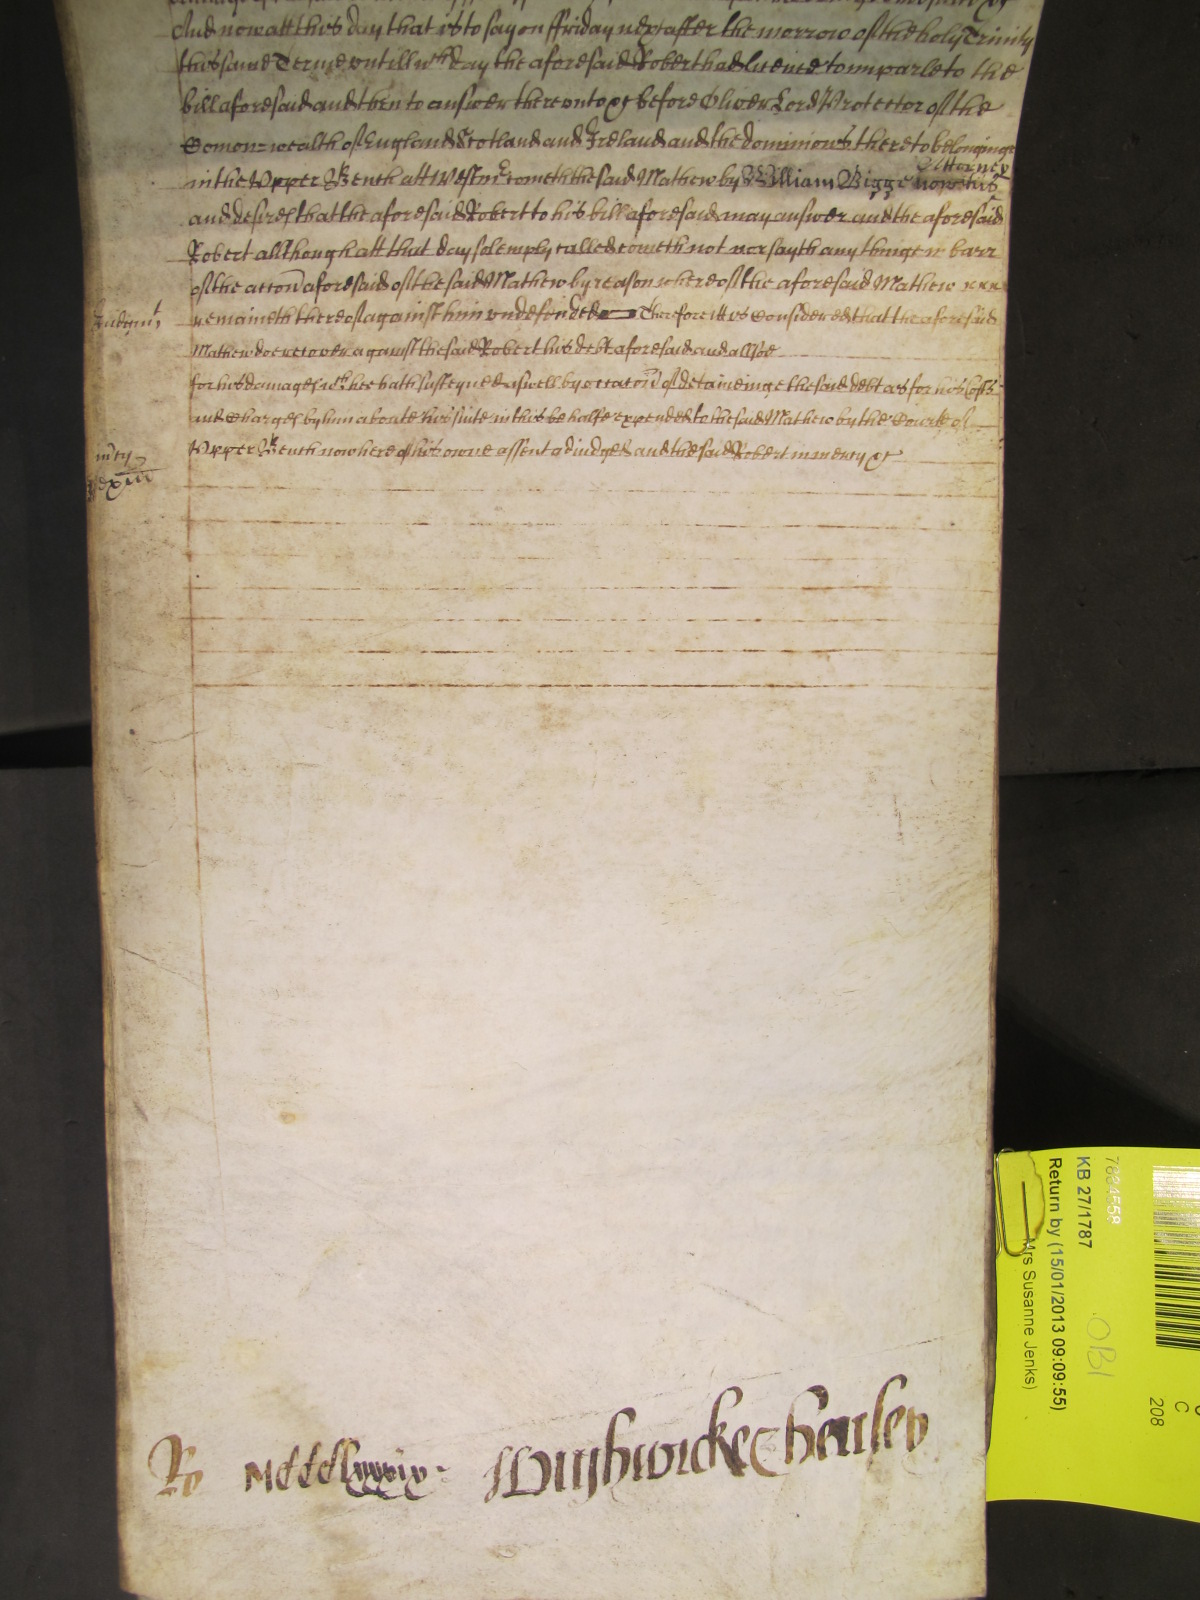 And now att this day that is to say on ffriday next after the morrow of the holy Trinity
this same Terme untill wch day the aforesaid Robert had licence to imparle to the
bill aforesaid and then to answer thereunto &c before Oliver Lord Protector of the
Comon=wealth of England Scotland and Ireland and the dominions thereto belonginge
Attorney
in the Upper Bench att Westmr cometh the said Mathew by William Bigge now his
and desires that the aforesaid Robert to his bill aforesaid may answer and the aforesaid
Robert allthough att that day solemply called cometh not nor sayth any thinge in barr
of the accon aforesaid of the said Mathew by reason whereof the aforesaid Mathew xxx
Judgmt
remaineth thereof against him undefended Therefore itt is Considered that the aforesaid
Mathew doe recover against the said Robert his debt aforesaid and allsoe
for his damages wch hee hath susteyned aswell by occacon of detaineinge the said debt as for his Costs
and Charges by him aboute his suite in this behalfe expended to the said Mathew by the Court of
Upper Bench now here of his owne assent adiudged and the said Robert in mercy &c
mcy
Ro MCCCClxxxix
Winshwicke Chenley
7834558
KB 27/1787
Return by (15/01/2013 09:09:55)
Mrs Susanne Jenks)
OBI
C
208